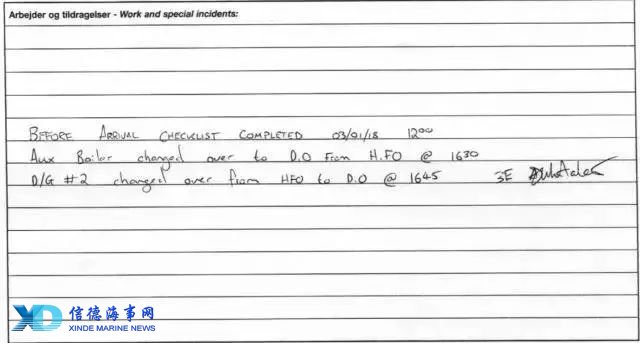 Arbejder og tildragelser - Work and special incidents:
BEFORE ARRIVAL CHECKLIST COMPLETED 03/01/18 1200
Aux Boiler changed over to D.O From H.FO @ 1630
D/G #2 changed over from HFO to D.O @ 1645 3E
信德海事网
XINDE MARINE NEWS